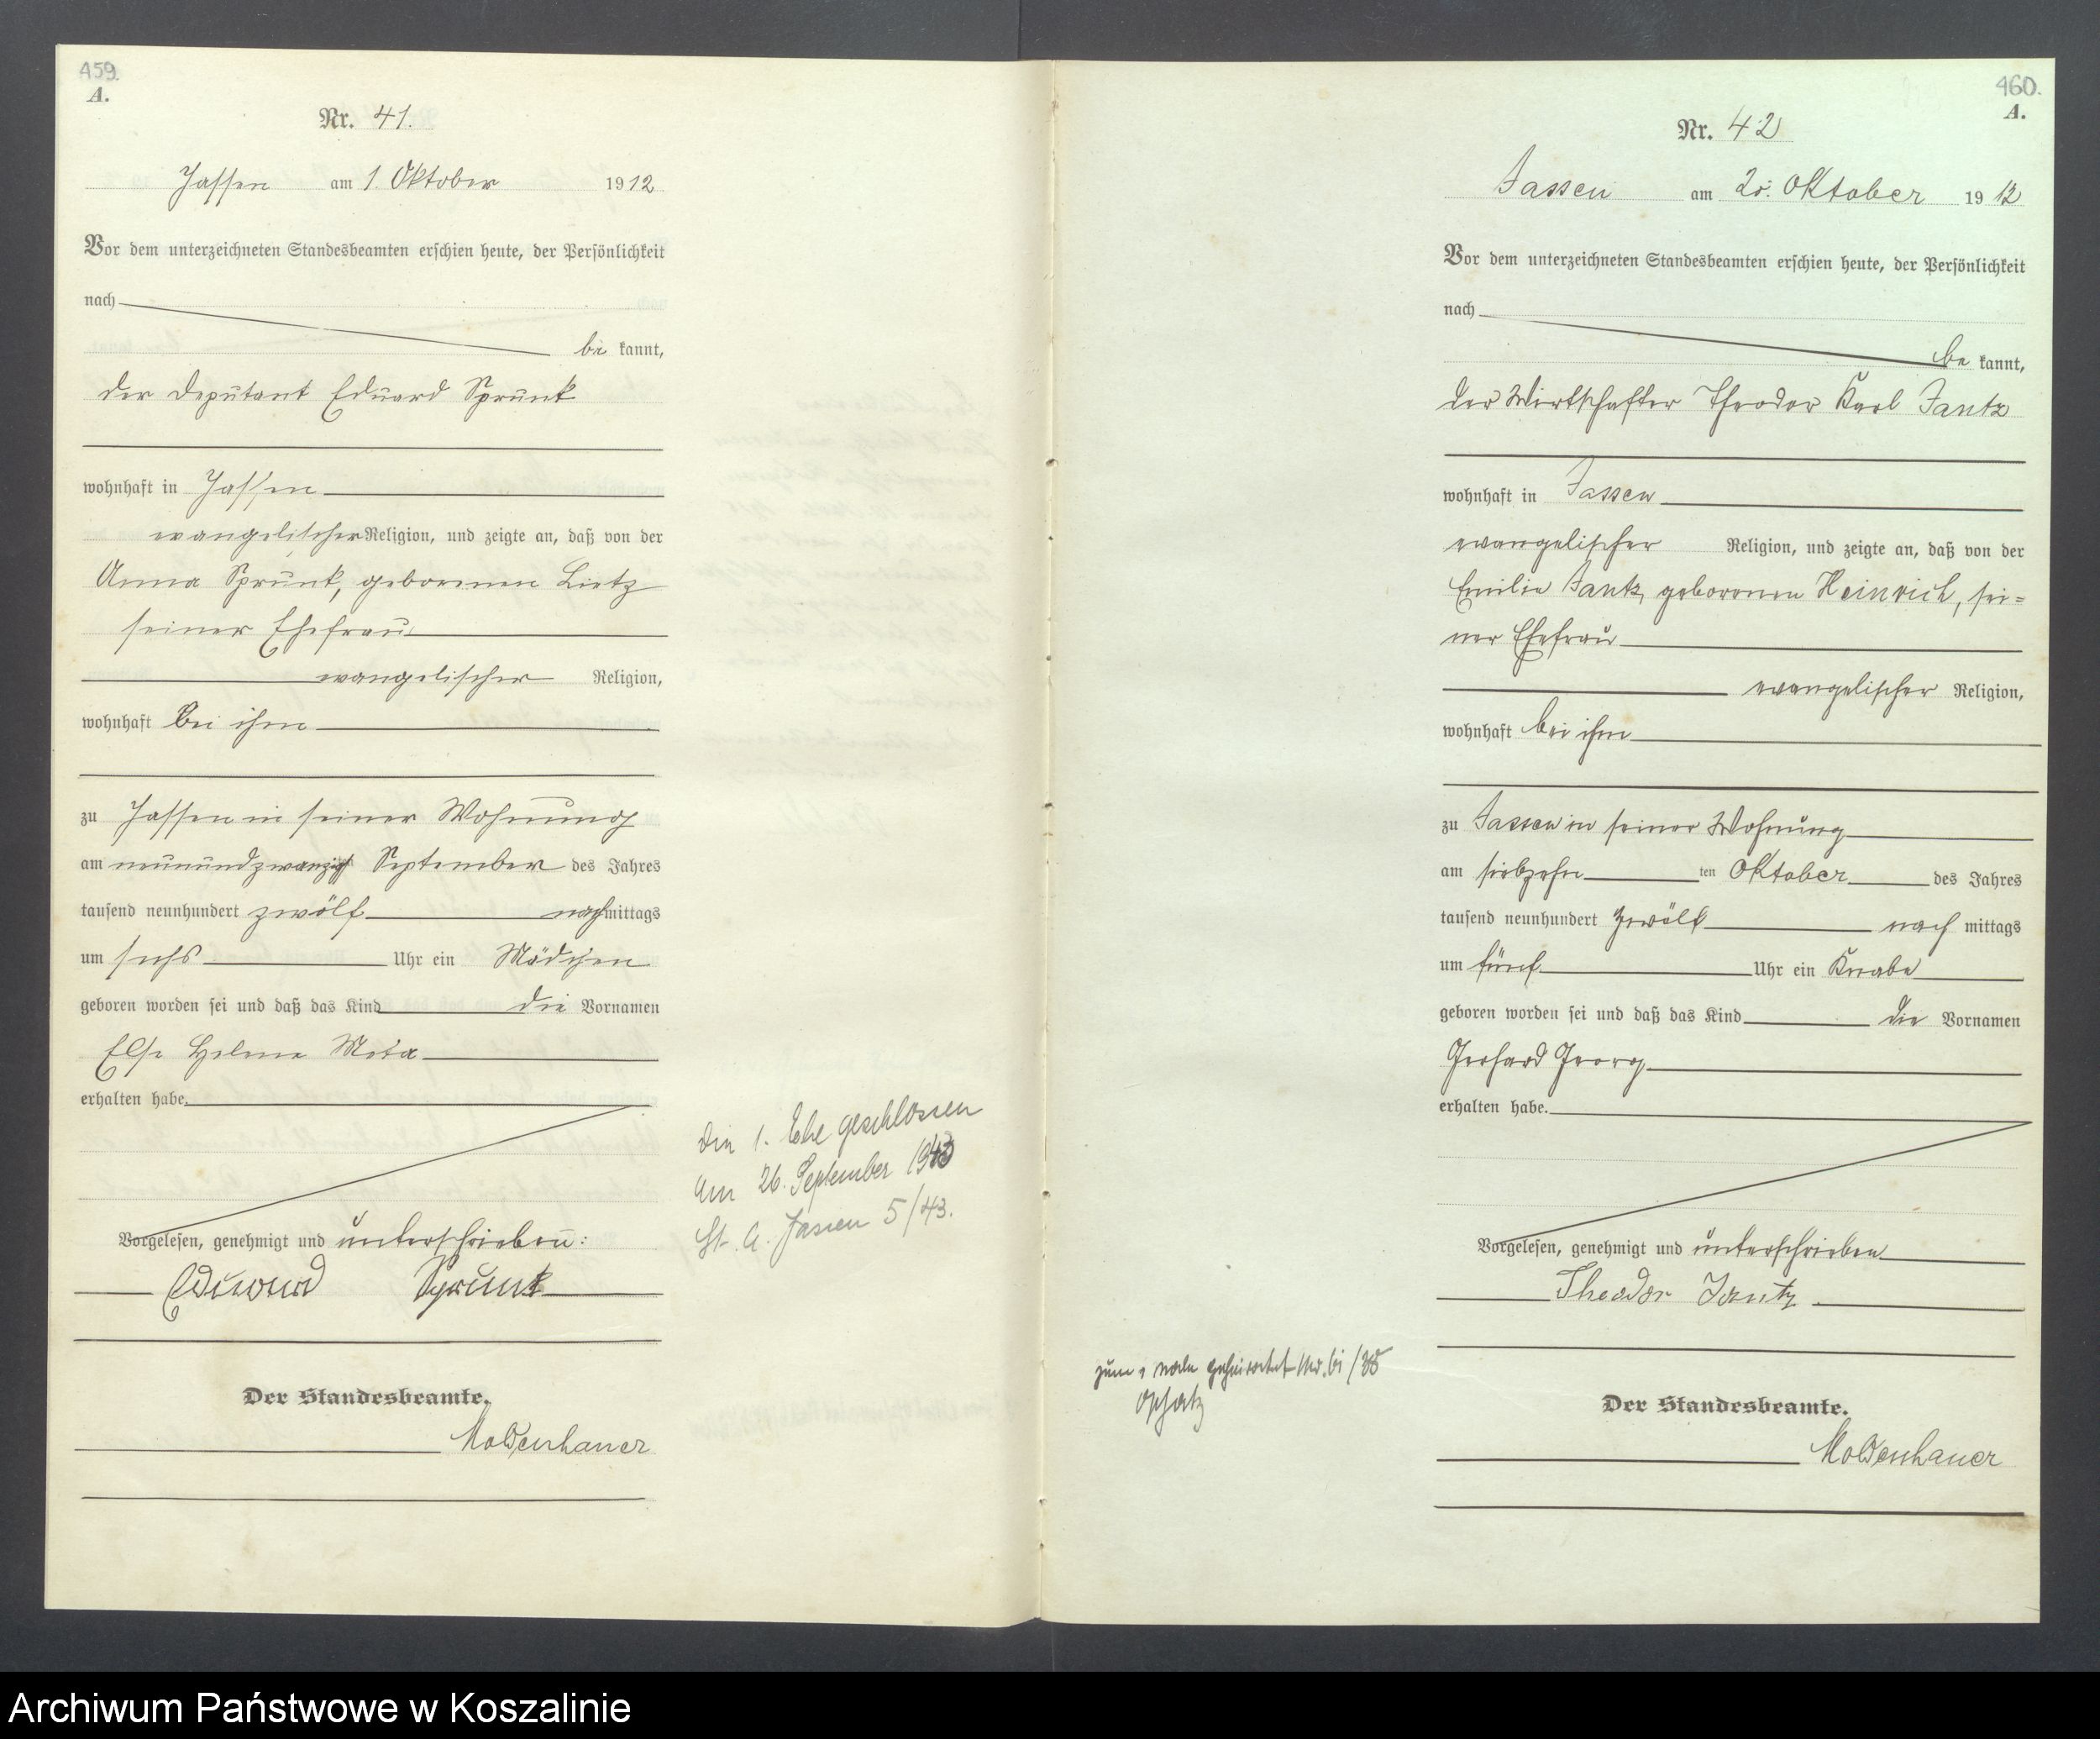 459.
A.
Nr. 41.
Jassen am 1 Oktober 1912
Vor dem unterzeichneten Standesbeamten erschien heute, der Persönlichkeit
nach
be kannt,
der Deputant Eduard Sprunk
wohnhaft in Jassen
evangelischer Religion, und zeigte an, daß von der
Anna Sprunk, geborenen Lietz
seiner Ehefrau
evangelischer Religion,
wohnhaft bei ihm
zu Jassen in seiner Wohnung
am neunundzwanzigst September des Jahres
tausend neunhundert zwölf nachmittags
um sechs Uhr ein Mädchen
geboren worden sei und daß das Kind die Vornamen
Else Helene Meta
erhalten habe.
Vorgelesen, genehmigt und unterschrieben:
Eduard Sprunk
Der Standesbeamte.
Moldenhauer
Die 1. Ehe geschlossen
am 26. September 1943
St. A. Jassen 5/43.
460.
A.
Nr. 42
Jassen am 20. Oktober 1912
Vor dem unterzeichneten Standesbeamten erschien heute, der Persönlichkeit
nach
be kannt,
der Wirtschafter Theodor Karl Jantz
wohnhaft in Jassen
evangelischer Religion, und zeigte an, daß von der
Emilie Jantz, geborenen Heinrich, sei=
ner Ehefrau
evangelischer Religion,
wohnhaft bei ihm
zu Jassen in seiner Wohnung
am siebzehn ten Oktober des Jahres
tausend neunhundert zwölf nach mittags
um fünf Uhr ein Knabe
geboren worden sei und daß das Kind die Vornamen
Gerhard Georg
erhalten habe.
Vorgelesen, genehmigt und unterschrieben
Theodor Jantz
Der Standesbeamte.
Moldenhauer
zum 1 male geheiratet
Archiwum Państwowe w Koszalinie